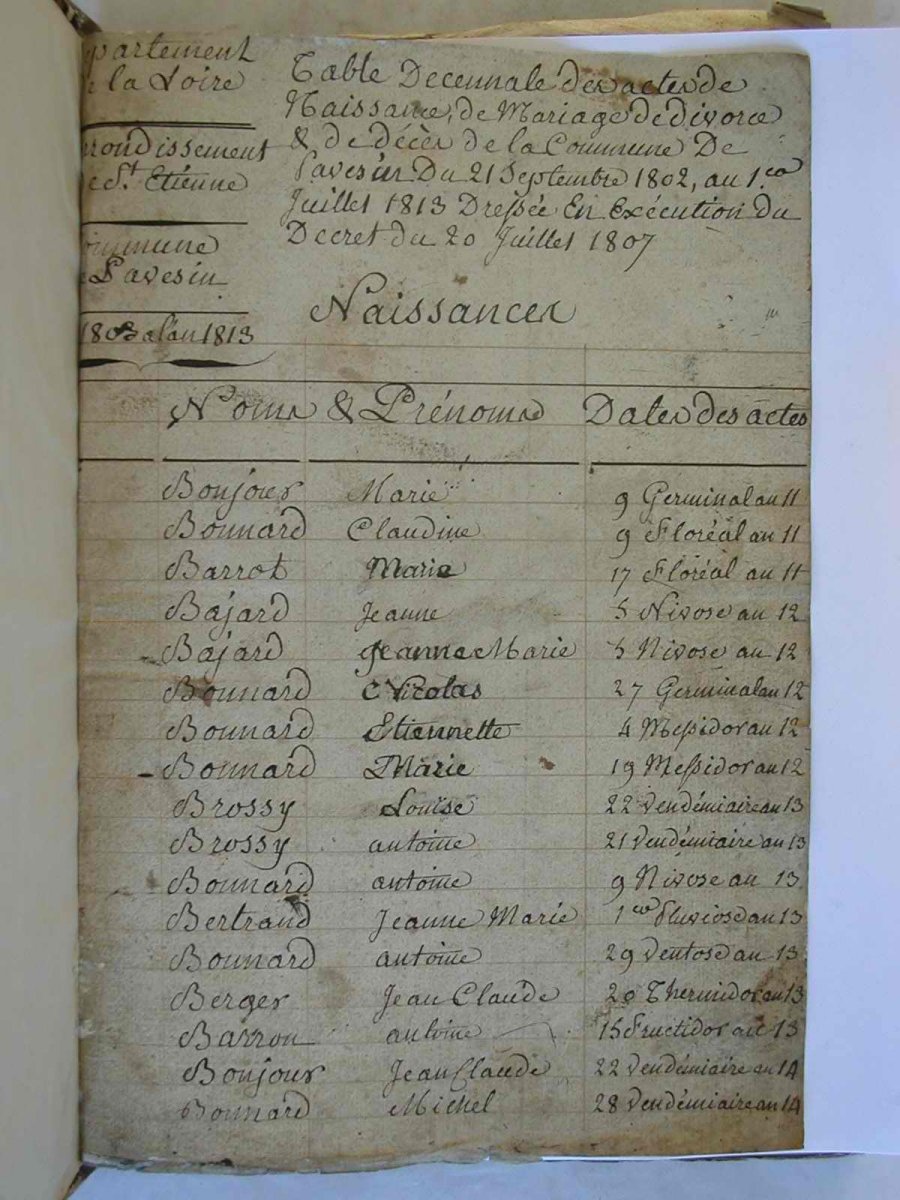 partement
la Loire
rrondissement
e St Etienne
ommune
Pavesin
1803 a lan 1813
Table Decennale des actes de
Naissance, de Mariage de divorce
& de décès de la Commune De
Pavesin Du 21 Septembre 1802, au 1.er
Juillet 1813 Dressée En exécution du
Decret du 20 Juillet 1807
Naissances
Noms & Prénoms Dates des actes
Bonjour Marie 9 Germinal an 11
Bonnard Claudine 9 Floréal an 11
Barrot Marie 17 Floréal an 11
Bajard Jeanne 5 Nivose an 12
Bajard Jeanne Marie 5 Nivose an 12
Bonnard Nicolas 27 Germinal an 12
Bonnard Etiennette 4 Messidor an 12
Bonnard Marie 19 Messidor an 12
Brossy Louise 22 Vendémiaire an 13
Brossy antoine 21 Vendémiaire an 13
Bonnard antoine 9 Nivose an 13
Bertrand Jeanne Marie 1er Pluviose an 13
Bonnard antoine 29 Ventose an 13
Berger Jean Claude 20 Thermidor an 13
Barron antoine 15 Fructidor an 13
Bonjour Jean Claude 22 Vendémiaire an 14
Bonnard Michel 28 Vendémiaire an 14